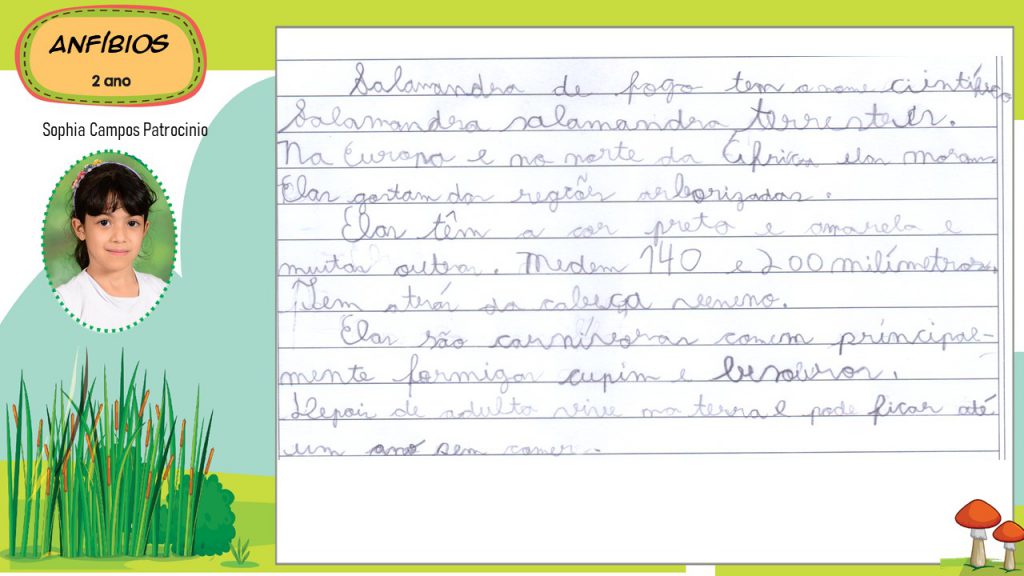 ANFÍBIOS
2 ano
Sophia Campos Patrocinio
Salamandra de fogo tem o nome científico
Salamandra salamandra terrestris.
Na Europa e no norte da África elas moram.
Elas gostam das regiões arborizadas.
Elas têm a cor preta e amarela e
muitas outras. Medem 140 e 200 milímetros.
Tem atrás da cabeça veneno.
Elas são carnívoras comem principal-
mente formigas cupim e besouros.
Depois de adulta vive na terra e pode ficar até
um ano sem comer.